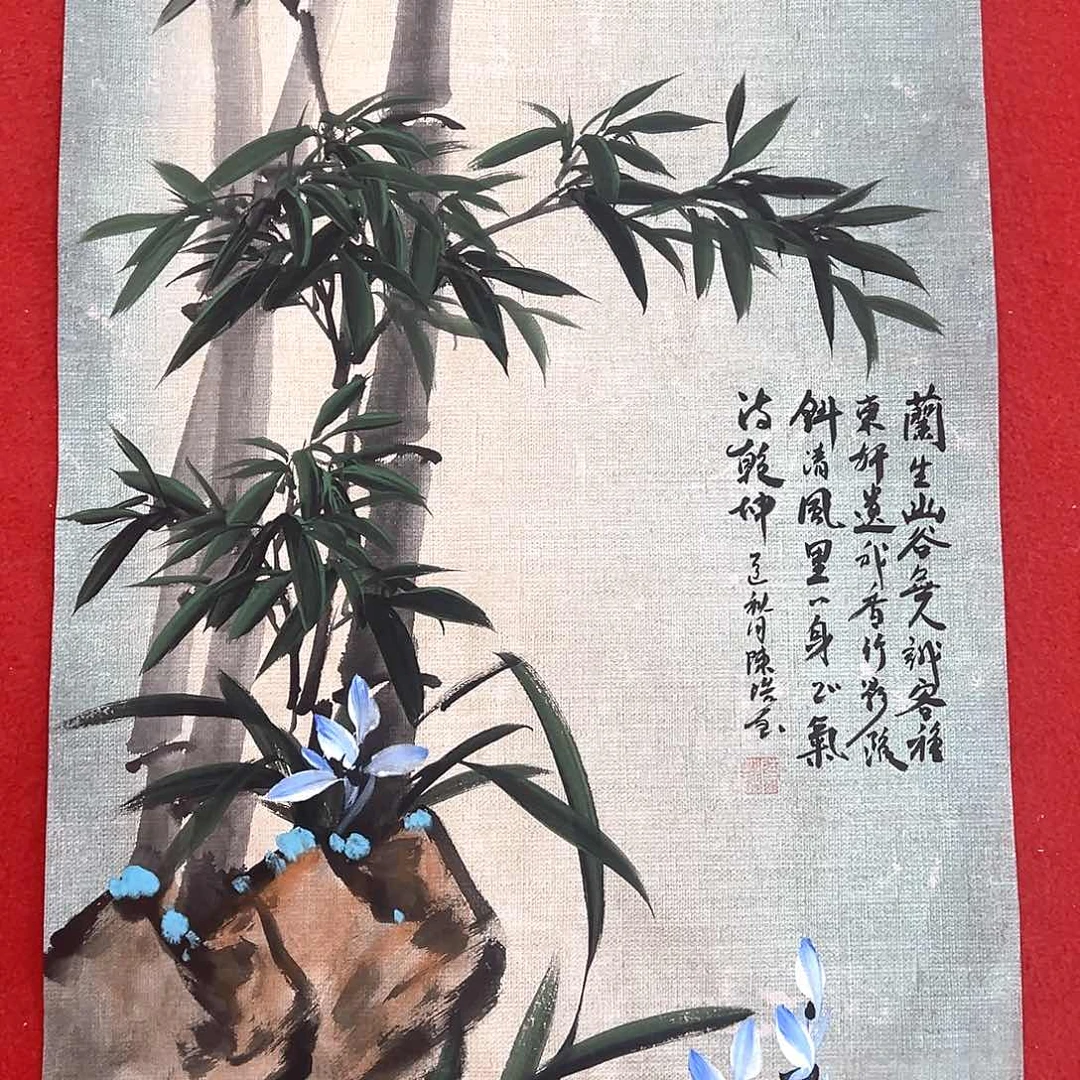 蘭生幽谷無人識客種
東軒遺我香竹影
斜清風里一身正氣
乾坤
秋月陳浩